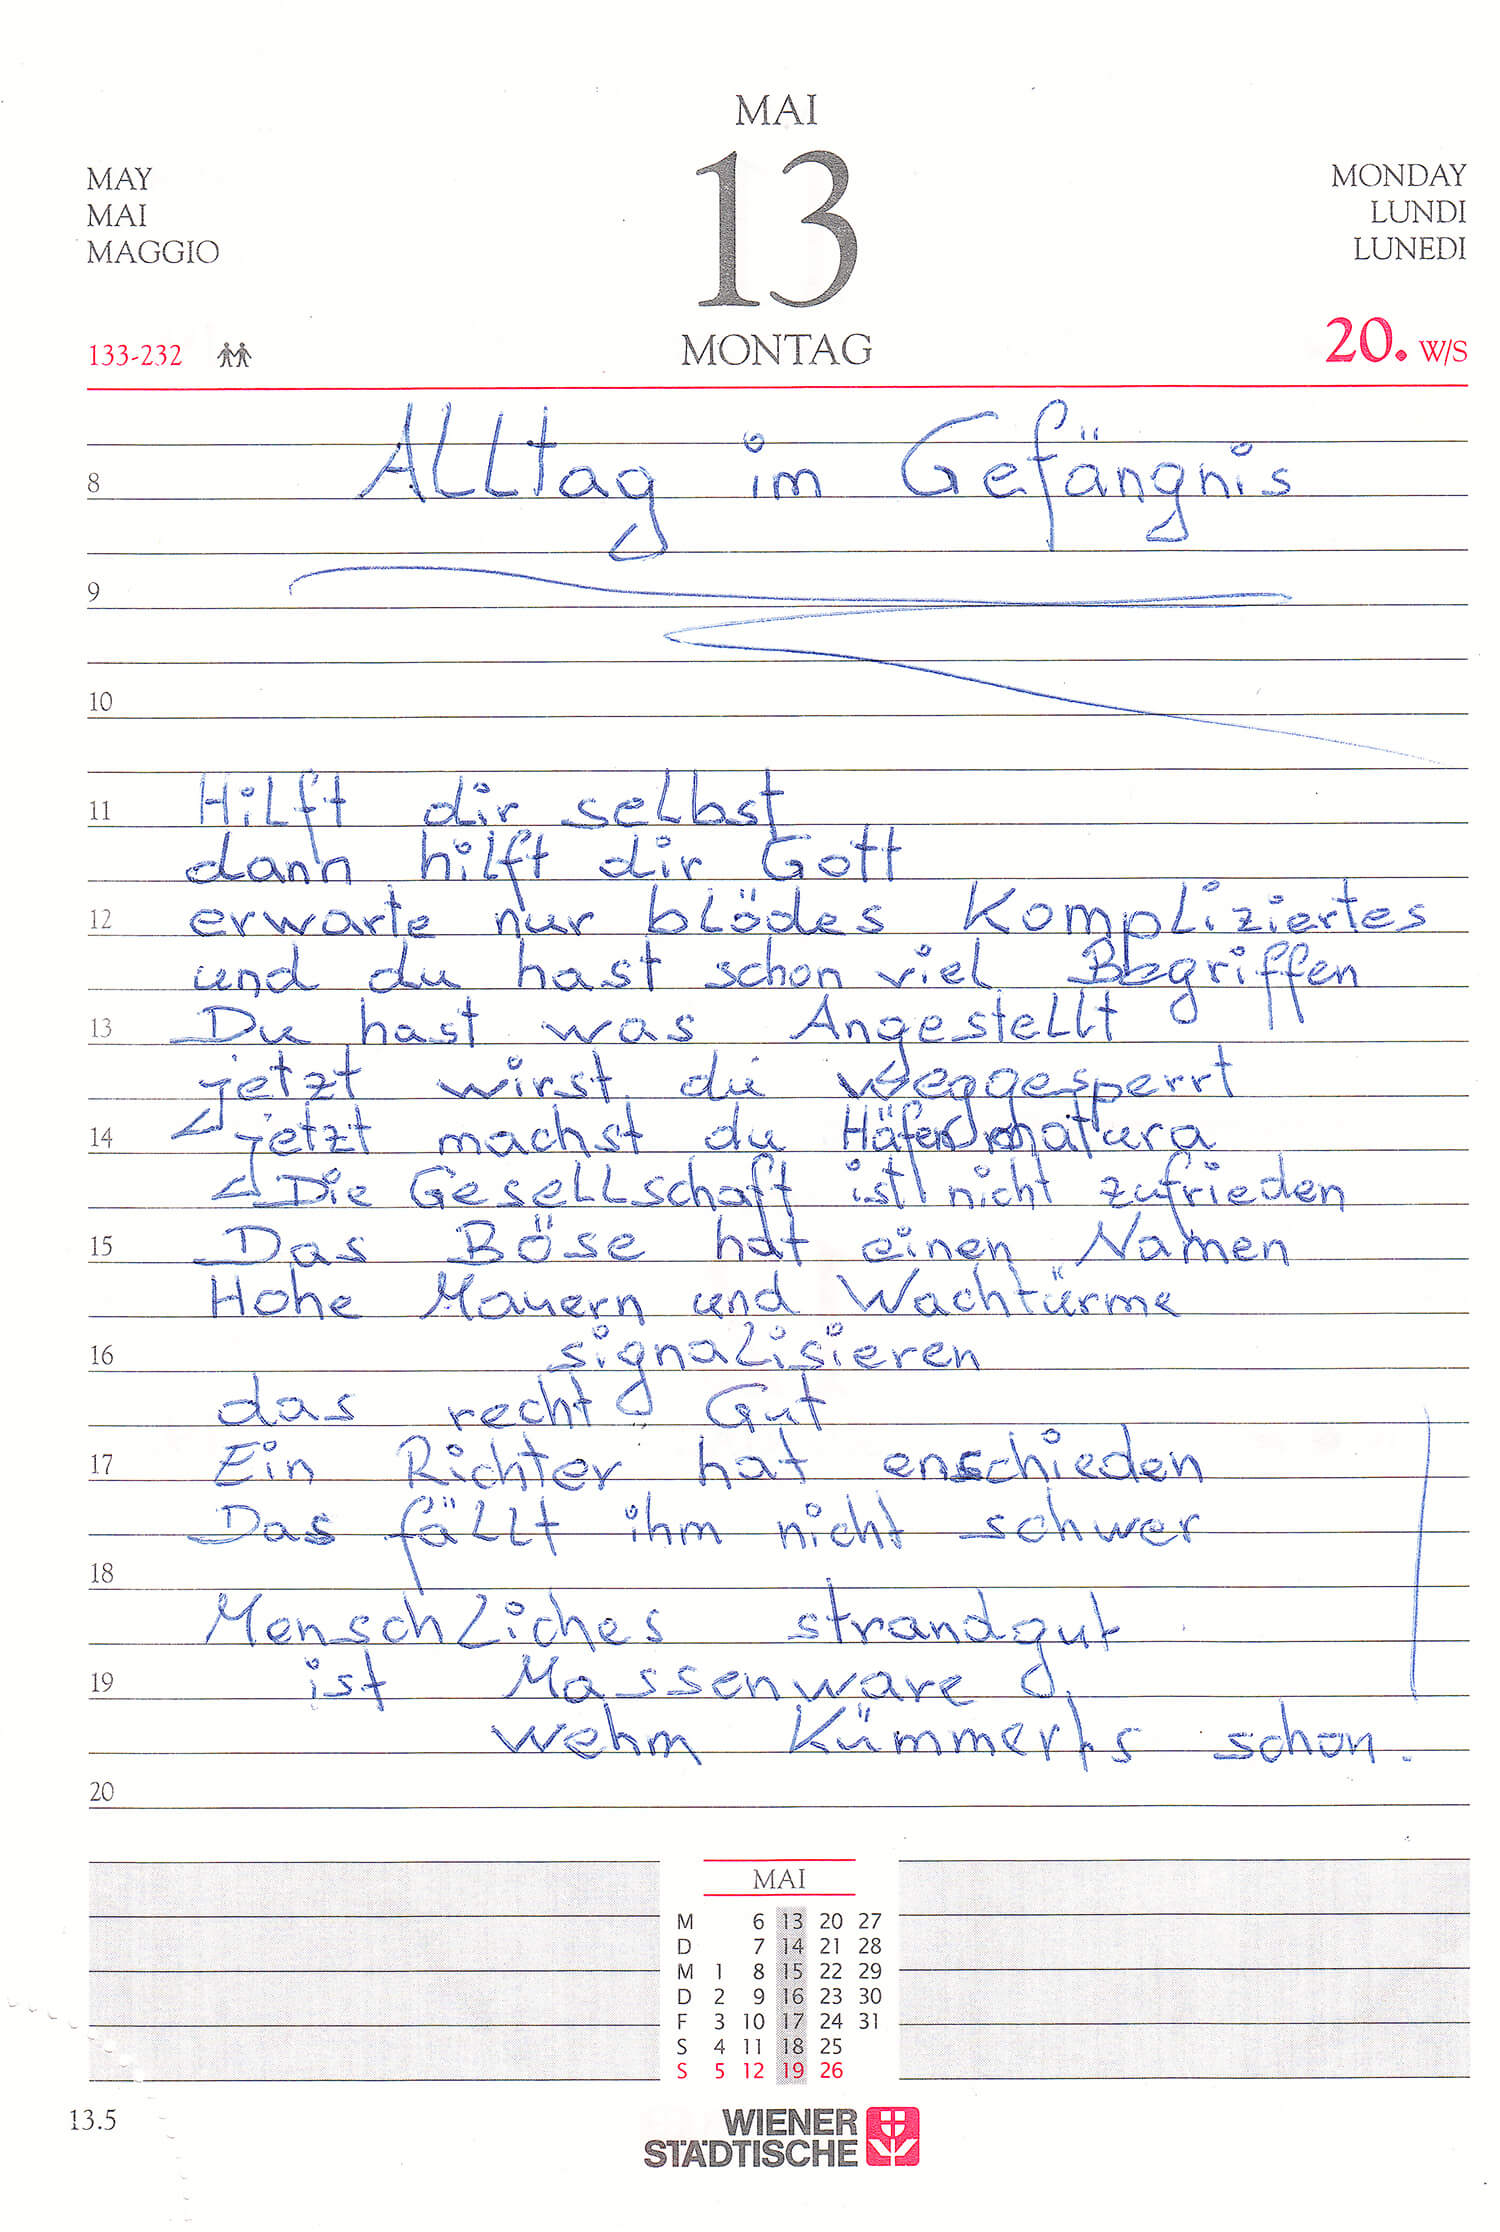 MAI
MAY
MAI
MAGGIO
13
MONDAY
LUNDI
LUNEDI
133-232
MONTAG
20. W/S
Alltag im Gefängnis
8
9
10
11 Hilft dir selbst
dann hilft dir Gott
12 erwarte nur blödes Kompliziertes
und du hast schon viel Begriffen
13 Du hast was Angestellt
jetzt wirst du weggesperrt
14 jetzt machst du Häfenmatura
Die Gesellschaft ist nicht zufrieden
15 Das Böse hat einen Namen
Hohe Mauern und Wachtürme
16 signalisieren
das recht Gut
17 Ein Richter hat enschieden
Das fällt ihm nicht schwer
18
Menschliches strandgut
19 ist Massenware
wehm Kümmerts schon.
20
MAI
M 6 13 20 27
D 7 14 21 28
M 1 8 15 22 29
D 2 9 16 23 30
F 3 10 17 24 31
S 4 11 18 25
S 5 12 19 26
13.5
WIENER
STÄDTISCHE